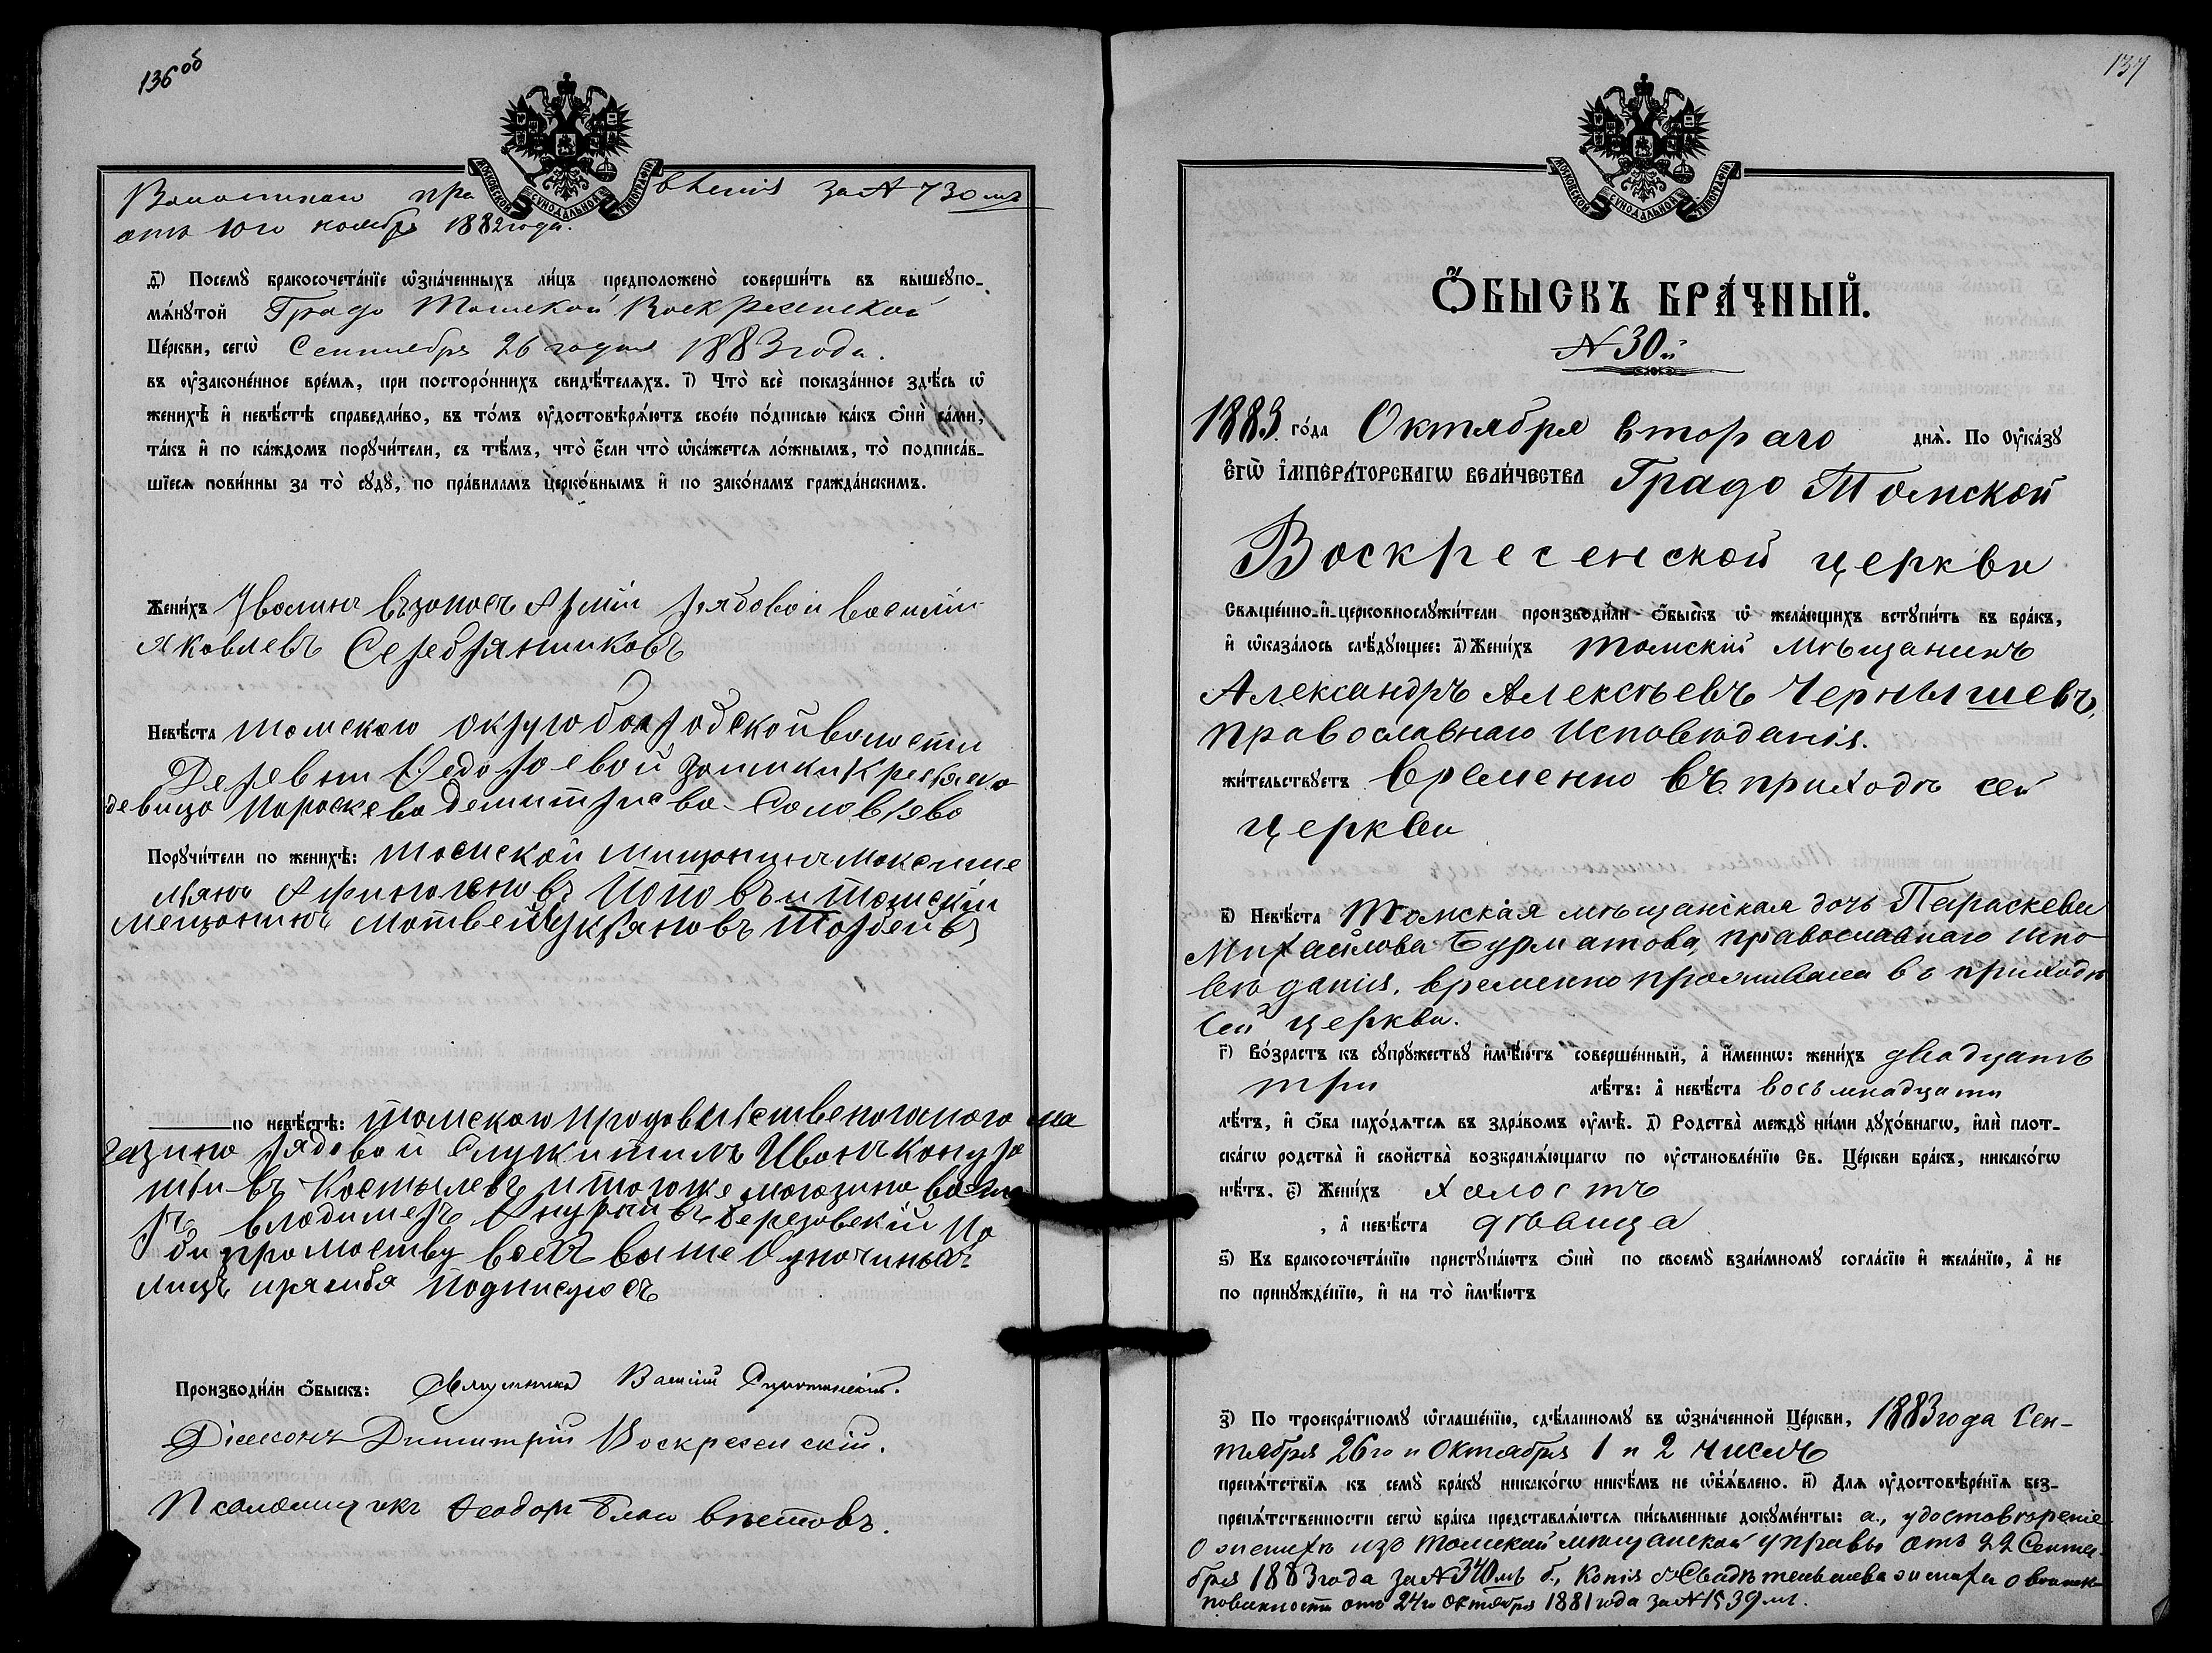 136 об
Волостнаго пра вленія за № 730 мъ
отъ 10го ноября 1882 года.
д҃) Посемꙋ̀ бракосочета́нїе ѡ҆зна́ченныхъ ли́цъ предположено̀ соверши́ть въ вышеꙋпо-
мѧ́нꙋтой Градо Томской Воскресенской
Це́ркви, сегѡ̀ Сентября 26 года 1883 года.
въ ᲂу҆зако́ненное вре́мѧ, при посторо́ннихъ свидѣ́телѧхъ. і҃) Что̀ всѐ показа́нное здѣ́сь ѡ҆
женихѣ̀ и҆ невѣ́стѣ справедли́во, въ то́мъ ᲂу҆достовѣрѧ́ютъ свое́ю по́дписью ка́къ ѻ҆нѝ са́ми,
та́къ и҆ по ка́ждомъ порꙋчи́тели, съ тѣ́мъ, что̀ є҆́сли что̀ ѡ҆ка́жетсѧ ло́жнымъ, то̀ подписа́в-
шїесѧ пови́нны за то̀ сꙋдꙋ̀, по пра́виламъ церко́внымъ и҆ по зако́намъ гражда́нскимъ.
Жени́хъ Уволинъ въ запосъ Армiи рядовой Василiй
Яковлевъ Серебрянниковъ
Невѣ́ста томскаго округо бояродской волости
Деревни Федосоевой заимки крестянско
девицо Пороскева Демитриева Соловьево
Порꙋчи́тели по женихѣ̀: томской мищонинъ Моксими
льянъ Афиногеновъ Поповъ и томскiй
мещонинъ Мотвей Укьяновъ Тордеивъ
по невѣ́стѣ: томскаго продовольственогоного ма
газино рядовой служитиль Ивонъ
Костылевъ и тогоже могозино
Влодимеръ березовскiй по
всехъ выше означиныхъ
лицъ и за себя подписуюсъ
Производи́ли ѻ҆́быскъ: Священникъ Василiй Сиротинскiй.
Дiаконъ Димитрiй Воскресенскiй.
Псаломщикъ Феодоръ Благовѣстовъ.
137
МОСКОВСКОЙ СѴНОДАЛЬНОЙ ТИПОГРАФІИ
Ѻ҆́БЫСКЪ БРА́ЧНЫЙ.
№ 30й
1883 го́да Октября втораго днѧ̀. По Оу҆ка́зꙋ
є҆гѡ̀ і҆мпера́торскагѡ вели́чества Градо Томской
Воскресенской церкви
Свѧще́нно-и҆-церковнослꙋжи́тели производи́ли ѻ҆́быскъ ѡ҆ жела́ющихъ встꙋпи́ть въ бра́къ,
и҆ ѡ҆каза́лось слѣ́дꙋющее: а҃) Жени́хъ томскiй мѣщанинъ
Александръ Алексѣевъ Чернышевъ,
православнаго исповѣданiя.
жи́тельствꙋетъ временно въ приходѣ сей
церкви
в҃) Невѣ́ста Томская мѣщанская дочь Параскева
Михайлова Бурматова, православнаго испо
вѣданiя, временно проживала въ приходѣ
сей церкви.
г҃) Во́зрастъ къ сꙋпрꙋ́жествꙋ и҆мѣ́ютъ соверше́нный, а҆ и҆́меннѡ: жени́хъ двадцать
три лѣ́тъ: а҆ невѣ́ста восьмнадцати
лѣ́тъ, и҆ ѻ҆́ба нахо́дѧтсѧ въ здра́вомъ ᲂу҆мѣ̀. д҃) Родства̀ междꙋ ни́ми дꙋхо́внагѡ, и҆лѝ плот-
ска́гѡ родства̀ и҆ сво́йства возбранѧ́ющагѡ по ᲂу҆становле́нїю Св. Це́ркви бра́къ, никако́гѡ
нѣ́тъ. є҃) Жени́хъ холостъ
, а҆ невѣ́ста дѣвица
ѕ҃) Къ бракосочета́нїю пристꙋпа́ютъ ѻ҆нѝ по своемꙋ̀ взаи́мномꙋ согла́сїю и҆ жела́нїю, а҆ не
по принꙋжде́нїю, и҆ на то̀ и҆мѣ́ютъ
з҃) По троекра́тномꙋ ѡ҆глаше́нїю, сдѣ́ланномꙋ въ ѡ҆зна́ченной Це́ркви, 1883 года Сен-
тября 26го и Октября 1 и 2 чиселъ
препѧ́тствїѧ къ семꙋ̀ бра́кꙋ никако́гѡ никѣ́мъ не ѡ҆б̾ѧ́влено. и҃) Длѧ ᲂу҆достовѣре́нїѧ без-
препѧ́тственности сегѡ̀ бра́ка представлѧ́ютсѧ пи́сьменные докꙋме́нты: а., удостовѣренiе
о женихѣ изъ Томской мѣщанской управы отъ 22 Сентя-
бря 1883 года за № 340 мъ б., Копiя Свидѣтельства жениха о воинск.
повинности отъ 24го Октября 1881 года за № 1539 мъ.